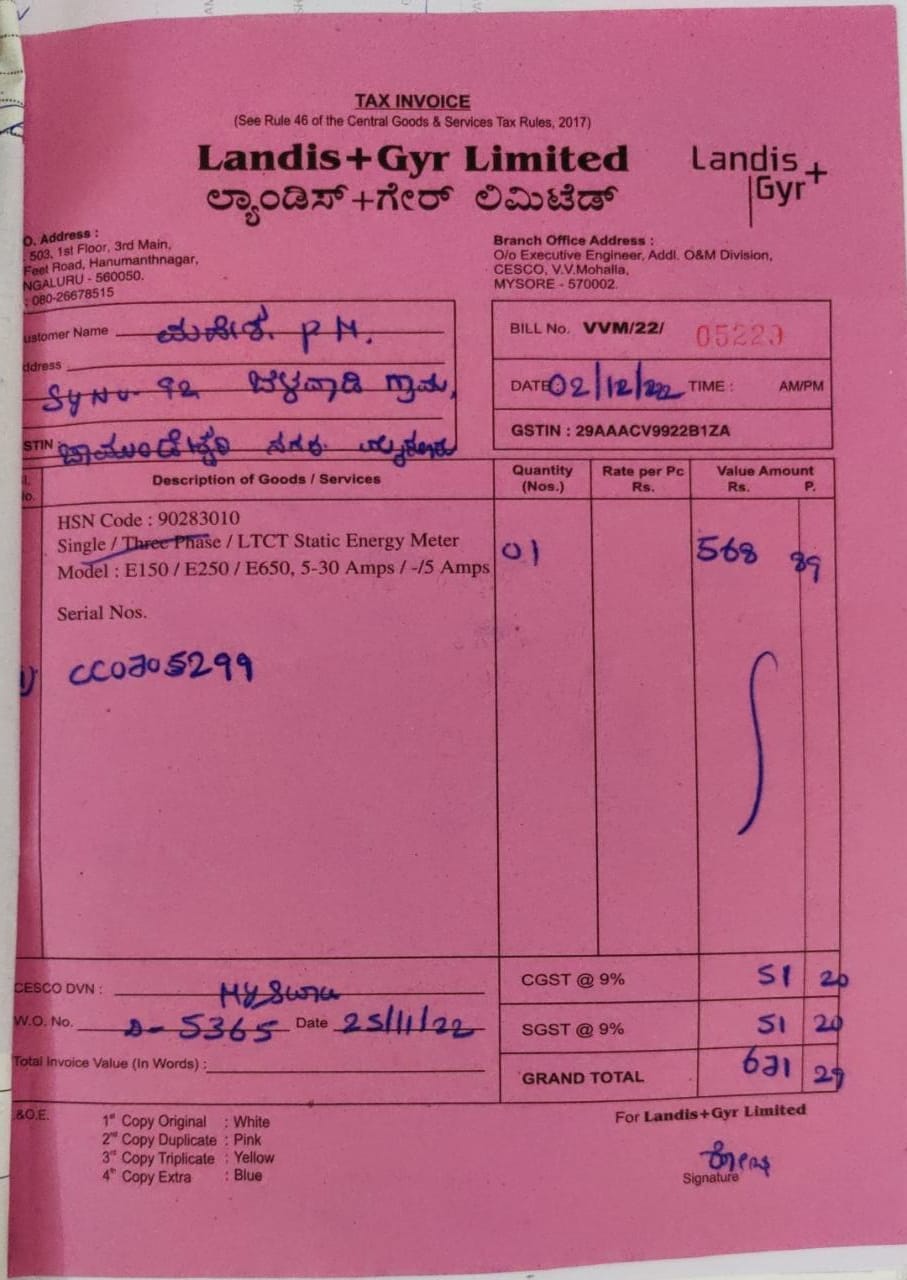 TAX INVOICE
(See Rule 46 of the Central Goods & Services Tax Rules, 2017)
Landis+Gyr Limited
ಲ್ಯಾಂಡಿಸ್+ಗೇರ್ ಲಿಮಿಟೆಡ್
Landis+
Gyr
O. Address :
503, 1st Floor, 3rd Main,
Feet Road, Hanumanthnagar,
NGALURU - 560050.
: 080-26678515
Branch Office Address :
O/o Executive Engineer, Addl. O&M Division,
CESCO, V.V.Mohalla,
MYSORE - 570002.
ustomer Name ಮಹೇಶ. P M.
ddress
Sy No- 92 ಬೆಳವಾಡಿ ಗ್ರಾಮ,
STIN ಚಾಮುಂಡೇಶ್ವರಿ ನಗರ
BILL No. VVM/22/ 05229
DATE: 02/12/22 TIME : AM/PM
GSTIN : 29AAACV9922B1ZA
l. No. Description of Goods / Services Quantity (Nos.) Rate per Pc Rs. Value Amount Rs. P.
HSN Code : 90283010
Single / Three Phase / LTCT Static Energy Meter 01 568 89
Model : E150 / E250 / E650, 5-30 Amps / -/5 Amps
Serial Nos.
1) CC0705299
CESCO DVN : Mysuru
W.O. No. D- 5365 Date 25/11/22
Total Invoice Value (In Words) :
CGST @ 9% 51 20
SGST @ 9% 51 20
GRAND TOTAL 671 29
&O.E.
1st Copy Original : White
2nd Copy Duplicate : Pink
3rd Copy Triplicate : Yellow
4th Copy Extra : Blue
For Landis+Gyr Limited
Signature